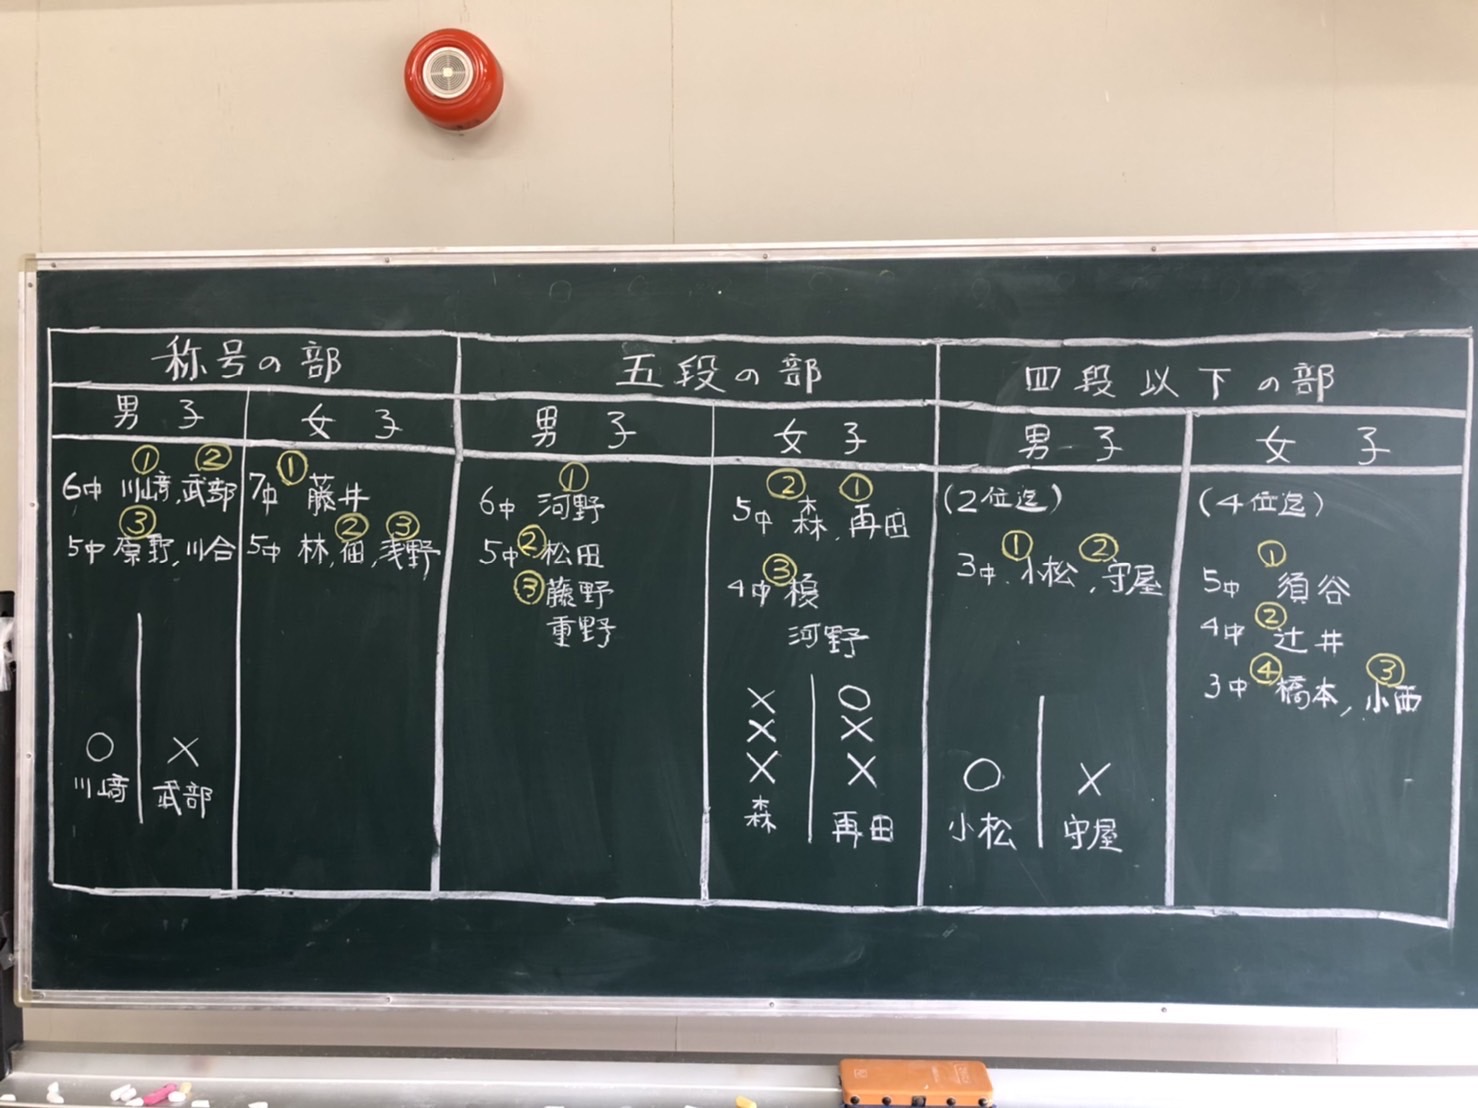 称号の部
男子
① ②
6中 川﨑,武部
③
5中 原野,川合
○ ×
川﨑 武部
女子
①
7中 藤井
② ③
5中 林,佃,浅野
五段の部
男子
①
6中 河野
5中 ② 松田
③ 藤野
重野
女子
② ①
5中 森,再田
③
4中 榎
河野
× ○
× ×
× ×
森 再田
四段以下の部
男子
(2位迄)
① ②
3中 小松,守屋
○ ×
小松 守屋
女子
(4位迄)
①
5中 須谷
②
4中 辻井
④ ③
3中 橋本,小西